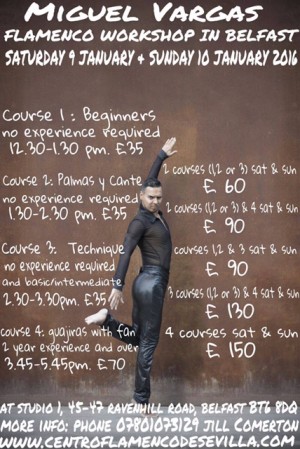 Miguel Vargas
FLAMENCO WORKSHOP IN BELFAST
SATURDAY 9 JANUARY & SUNDAY 10 JANUARY 2016
Course 1 : Beginners
no experience required
12.30-1.30 pm. £35
Course 2: Palmas y Cante
no experience required
1.30-2.30 pm. £35
Course 3: Technique
no experience required
and basic/intermediate
2.30-3.30pm. £35
course 4: guajiras with fan
2 year experience and over
3.45-5.45pm. £70
2 courses (1,2 or 3) sat & sun
£ 60
2 courses (1,2 or 3) & 4 sat & sun
£ 90
courses 1,2 & 3 sat & sun
£ 90
3 courses (1,2 or 3) & 4 sat & sun
£ 130
4 courses sat & sun
£ 150
AT STUDIO 1, 45-47 RAVENHILL ROAD, BELFAST BT6 8DQ
MORE INFO: PHONE 07801073129 JILL COMERTON
WWW.CENTROFLAMENCODESEVILLA.COM